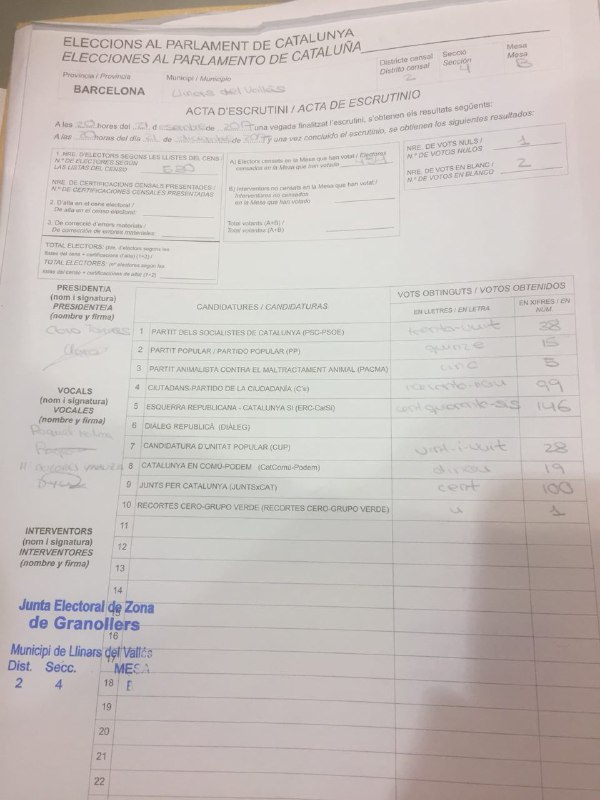 ELECCIONS AL PARLAMENT DE CATALUNYA
ELECCIONES AL PARLAMENTO DE CATALUÑA
Província / Provincia
BARCELONA
Municipi / Municipio
Llinars del Vallès
Districte censal
Distrito censal
2
Secció
Sección
4
Mesa
Mesa
B
ACTA D'ESCRUTINI / ACTA DE ESCRUTINIO
A les 20 hores del 21 d desembre de 2017 una vegada finalitzat l'escrutini, s'obtenen els resultats següents:
A las 20 horas del día 21 de diciembre de 2017 y una vez concluido el escrutinio, se obtienen los siguientes resultados:
1. NRE. D'ELECTORS SEGONS LES LLISTES DEL CENS /
N.º DE ELECTORES SEGÚN
LAS LISTAS DEL CENSO
NRE. DE CERTIFICACIONS CENSALS PRESENTADES /
N.º DE CERTIFICACIONES CENSALES PRESENTADAS
2. D'alta en el cens electoral /
De alta en el censo electoral:
3. De correcció d'errors materials /
De corrección de errores materiales:
TOTAL ELECTORS:
TOTAL ELECTORES:
A) Electors censats en la Mesa que han votat / Electores
censados en la Mesa que han votado
B) Interventors no censats en la Mesa que han votat /
Interventores no censados
en la Mesa que han votado
Total votants (A+B) /
Total votantes (A+B)
NRE. DE VOTS NULS /
N.º DE VOTOS NULOS
1
NRE. DE VOTS EN BLANC /
N.º DE VOTOS EN BLANCO
2
PRESIDENT/A
(nom i signatura)
PRESIDENTE/A
(nombre y firma)
VOCALS
(nom i signatura)
VOCALES
(nombre y firma)
INTERVENTORS
(nom i signatura)
INTERVENTORES
(nombre y firma)
CANDIDATURES / CANDIDATURAS
VOTS OBTINGUTS / VOTOS OBTENIDOS
EN LLETRES / EN LETRA
EN XIFRES / EN NUM
1 PARTIT DELS SOCIALISTES DE CATALUNYA (PSC-PSOE) trenta-vuit 38
2 PARTIT POPULAR / PARTIDO POPULAR (PP) quinze 15
3 PARTIT ANIMALISTA CONTRA EL MALTRACTAMENT ANIMAL (PACMA) cinc 5
4 CIUTADANS-PARTIDO DE LA CIUDADANÍA (C's) noranta-nou 99
5 ESQUERRA REPUBLICANA - CATALUNYA SÍ (ERC-CatSí) cent quaranta-sis 146
6 DIÀLEG REPUBLICÀ (DIÀLEG)
7 CANDIDATURA D'UNITAT POPULAR (CUP) vint-i-vuit 28
8 CATALUNYA EN COMÚ-PODEM (CatComú-Podem) dinou 19
9 JUNTS PER CATALUNYA (JUNTSxCAT) cent 100
10 RECORTES CERO-GRUPO VERDE (RECORTES CERO-GRUPO VERDE) u 1
11
12
13
14
15
16
17
18
19
20
21
22
Junta Electoral de Zona
de Granollers
Municipi de Llinars del Vallés
Dist. Secc. MESA
2 4